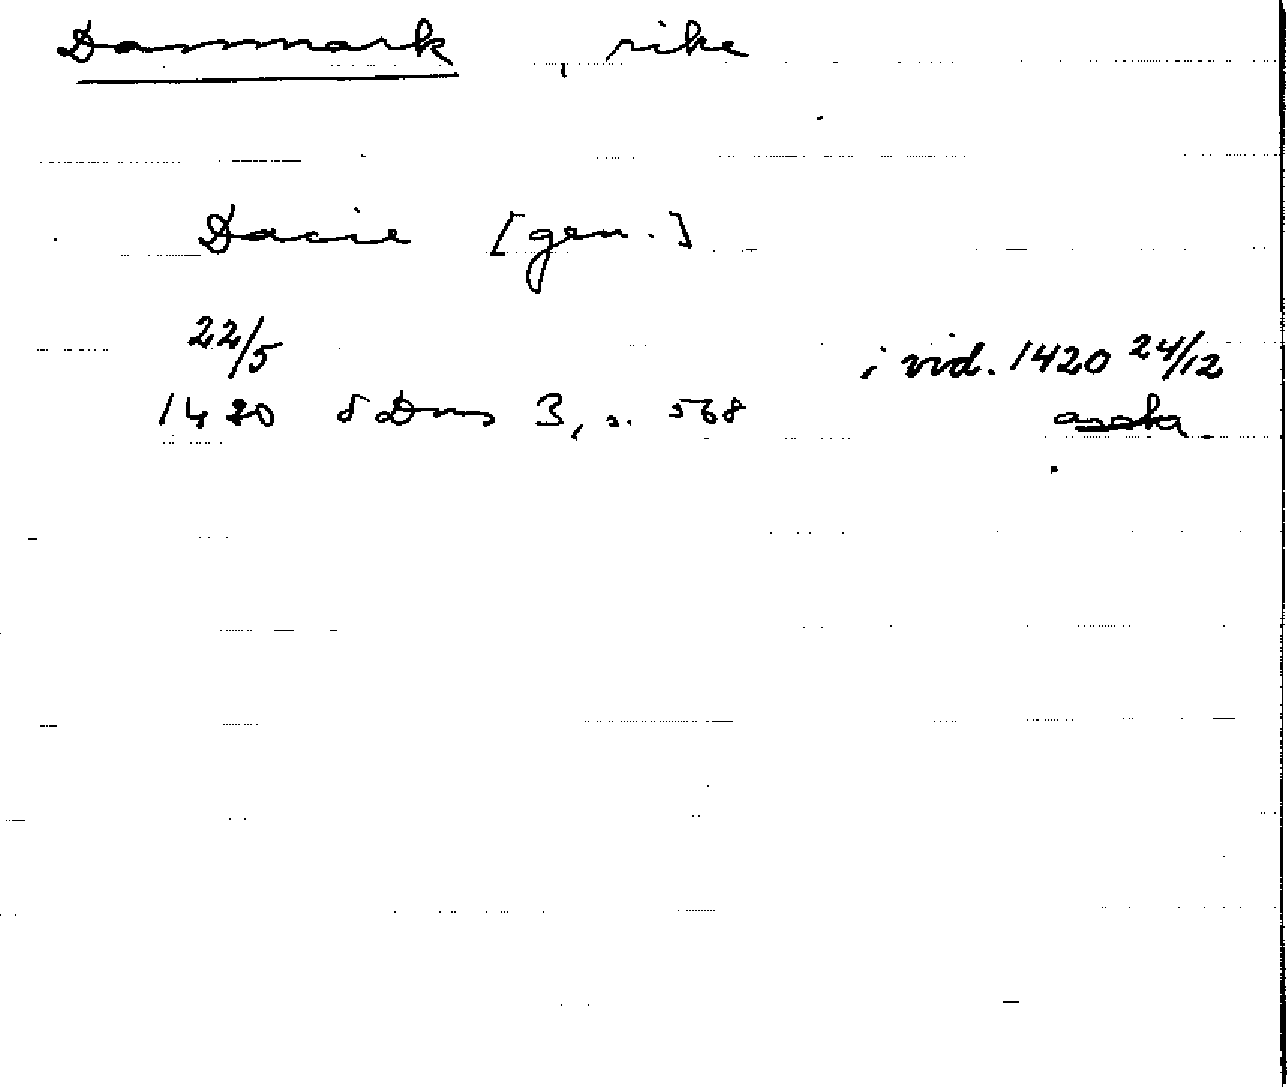 Danmark, rike
Dacie [gen.]
22/5 i vid. 1420 24/12
1420 SDns 3, s. 568 avskr.